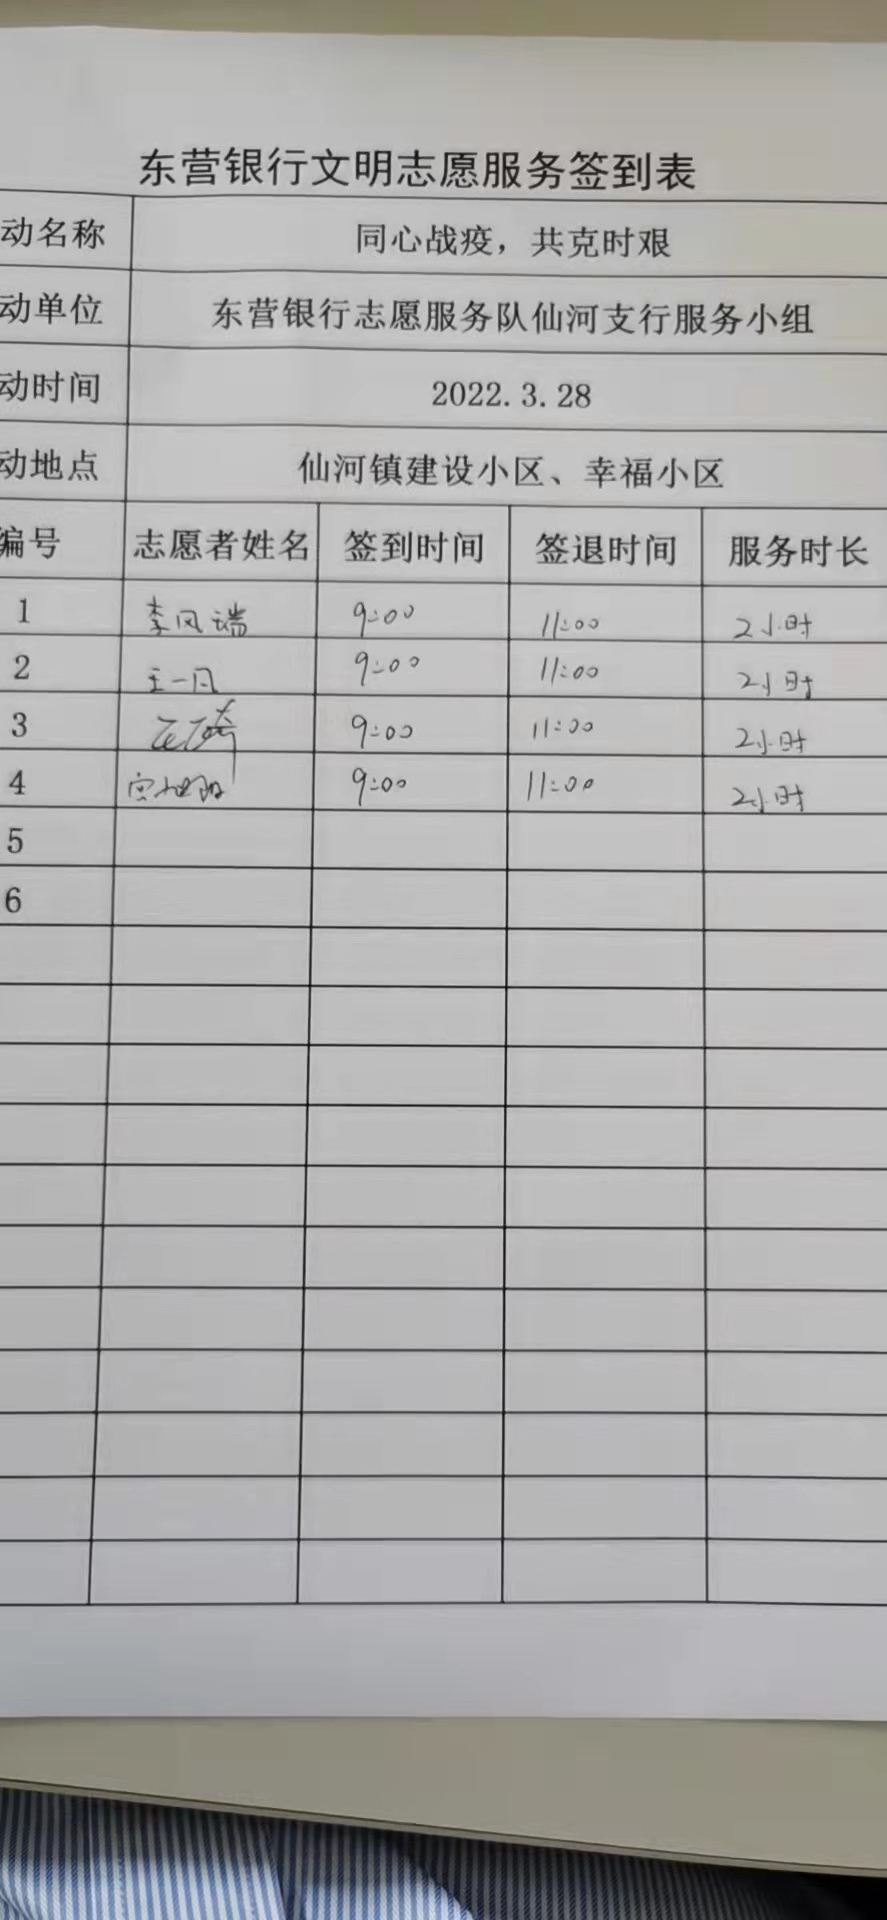 东营银行文明志愿服务签到表
动名称 同心战疫，共克时艰
动单位 东营银行志愿服务队仙河支行服务小组
动时间 2022.3.28
动地点 仙河镇建设小区、幸福小区
编号 志愿者姓名 签到时间 签退时间 服务时长
1 李风瑞 9:00 11:00 2小时
2 王一凡 9:00 11:00 2小时
3 9:00 11:00 2小时
4 9:00 11:00 2小时
5
6